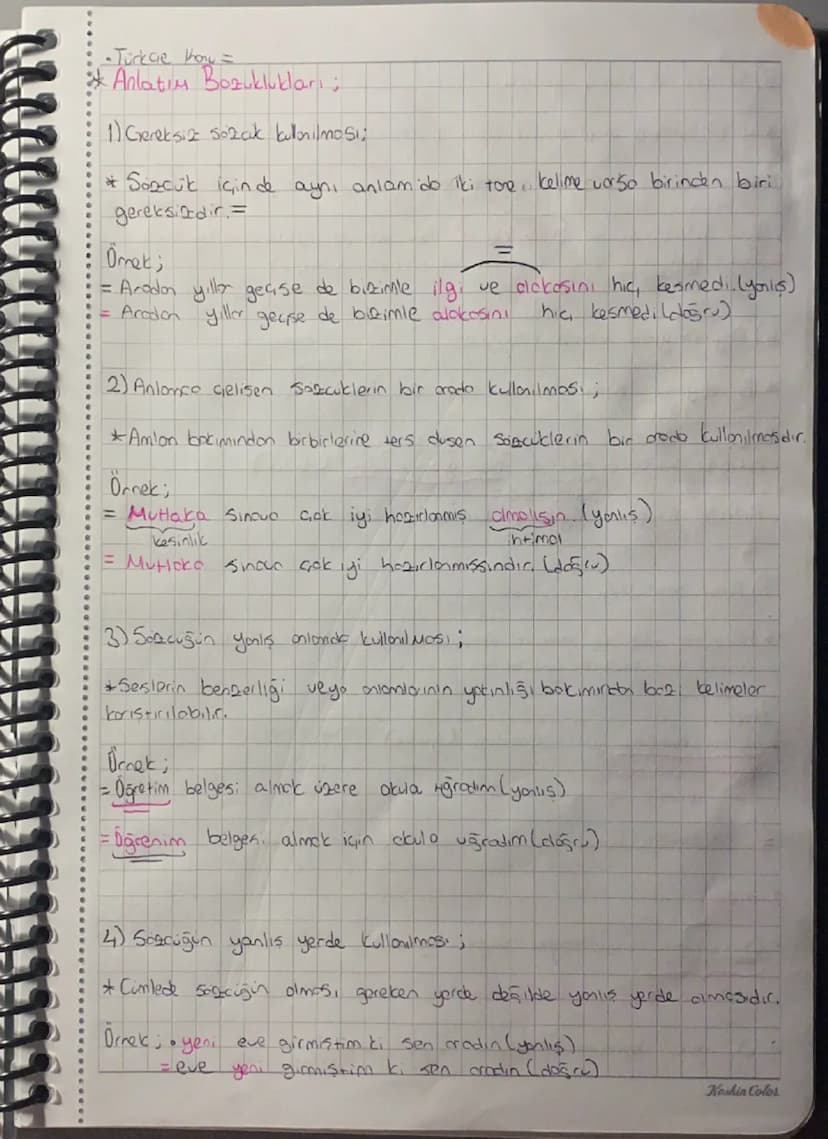 . Türkçe konu =
* Anlatım Bozuklukları ;
1) Gereksiz sözcük kullanılması;
* Sözcük içinde aynı anlamda iki tane kelime varsa birinden biri
gereksizdir. =
Örnek ;
=
= Aradan yıllar geçse de bizimle ilgi ve alakasını hiç kesmedi. (yanlış)
= Aradan yıllar geçse de bizimle alakasını hiç kesmedi (doğru)
2) Anlamca çelişen sözcüklerin bir arada kullanılması ;
* Amlan bakımından birbirlerine ters düşen sözcüklerin bir arada kullanılmasıdır.
Örnek ;
= Mutlaka sınava çok iyi hazırlanmış olmalısın. (yanlış)
kesinlik ihtimal
= Mutlaka sınava çok iyi hazırlanmışsındır. (doğru)
3) Sözcüğün yanlış anlamda kullanılması ;
* Seslerin benzerliği veya anlamlarının yakınlığı bakımından bazı kelimeler
karıştırılabilir.
Örnek ;
= Öğretim belgesi almak üzere okula uğradım (yanlış)
= Öğrenim belgesi almak için okula uğradım (doğru)
4) Sözcüğün yanlış yerde kullanılması ;
* Cümlede sözcüğün olması gereken yerde değilde yanlış yerde olmasıdır.
Örnek ; • yeni eve girmiştim ki sen aradın (yanlış)
= eve yeni girmiştim ki sen aradın (doğru)
Keskin Color